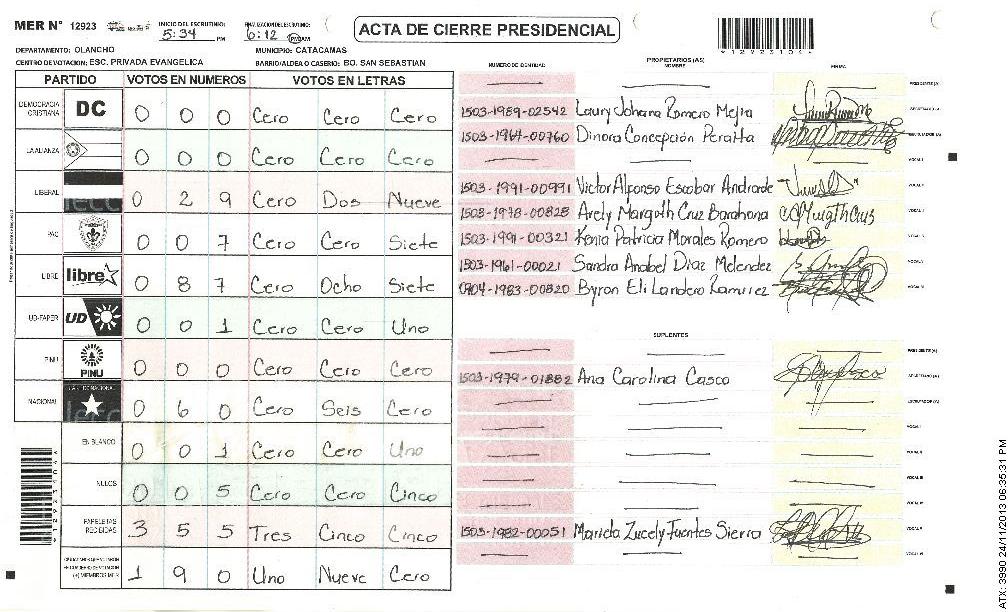 MER N° 12923
INICIO DEL ESCRUTINIO: 5:34 PM
FINALIZACION DEL ESCRUTINIO: 6:12 PM
ACTA DE CIERRE PRESIDENCIAL
DEPARTAMENTO: OLANCHO
MUNICIPIO: CATACAMAS
CENTRO DE VOTACION: ESC. PRIVADA EVANGELICA
BARRIO/ALDEA O CASERIO: BO. SAN SEBASTIAN
PARTIDO VOTOS EN NUMEROS VOTOS EN LETRAS
DEMOCRACIA CRISTIANA DC 0 0 0 Cero Cero Cero
LA ALIANZA 0 0 0 Cero Cero Cero
LIBERAL 0 2 9 Cero Dos Nueve
PAC 0 0 7 Cero Cero Siete
LIBRE libre 0 8 7 Cero Ocho Siete
UD-FAPER UD 0 0 1 Cero Cero Uno
PINU PINU 0 0 0 Cero Cero Cero
NACIONAL 0 6 0 Cero Seis Cero
EN BLANCO 0 0 1 Cero Cero Uno
NULOS 0 0 5 Cero Cero Cinco
PAPELETAS RECIBIDAS 3 5 5 Tres Cinco Cinco
(+) MIEMBROS MER 1 9 0 Uno Nueve Cero
NUMERO DE IDENTIDAD
PROPIETARIOS (AS)
NOMBRE
FIRMA
1503-1989-02542 Laury Johana Romero Mejia
1503-1964-00760 Dinora Concepción Peralta
1503-1991-00991 Victor Alfonso Escobar Andrade
1503-1978-00828 Arely Margoth Cruz Barahona
1503-1991-00321 Kenia Patricia Morales Romero
1503-1961-00021 Sandra Anabel Diaz Melendez
0904-1983-00820 Byron Eli Landero Ramirez
SUPLENTES
1503-1979-01882 Ana Carolina Casco
1503-1982-00051 Mariela Zucely Fuentes Sierra
ATX: 3990 24/11/2013 06:35:31 PM